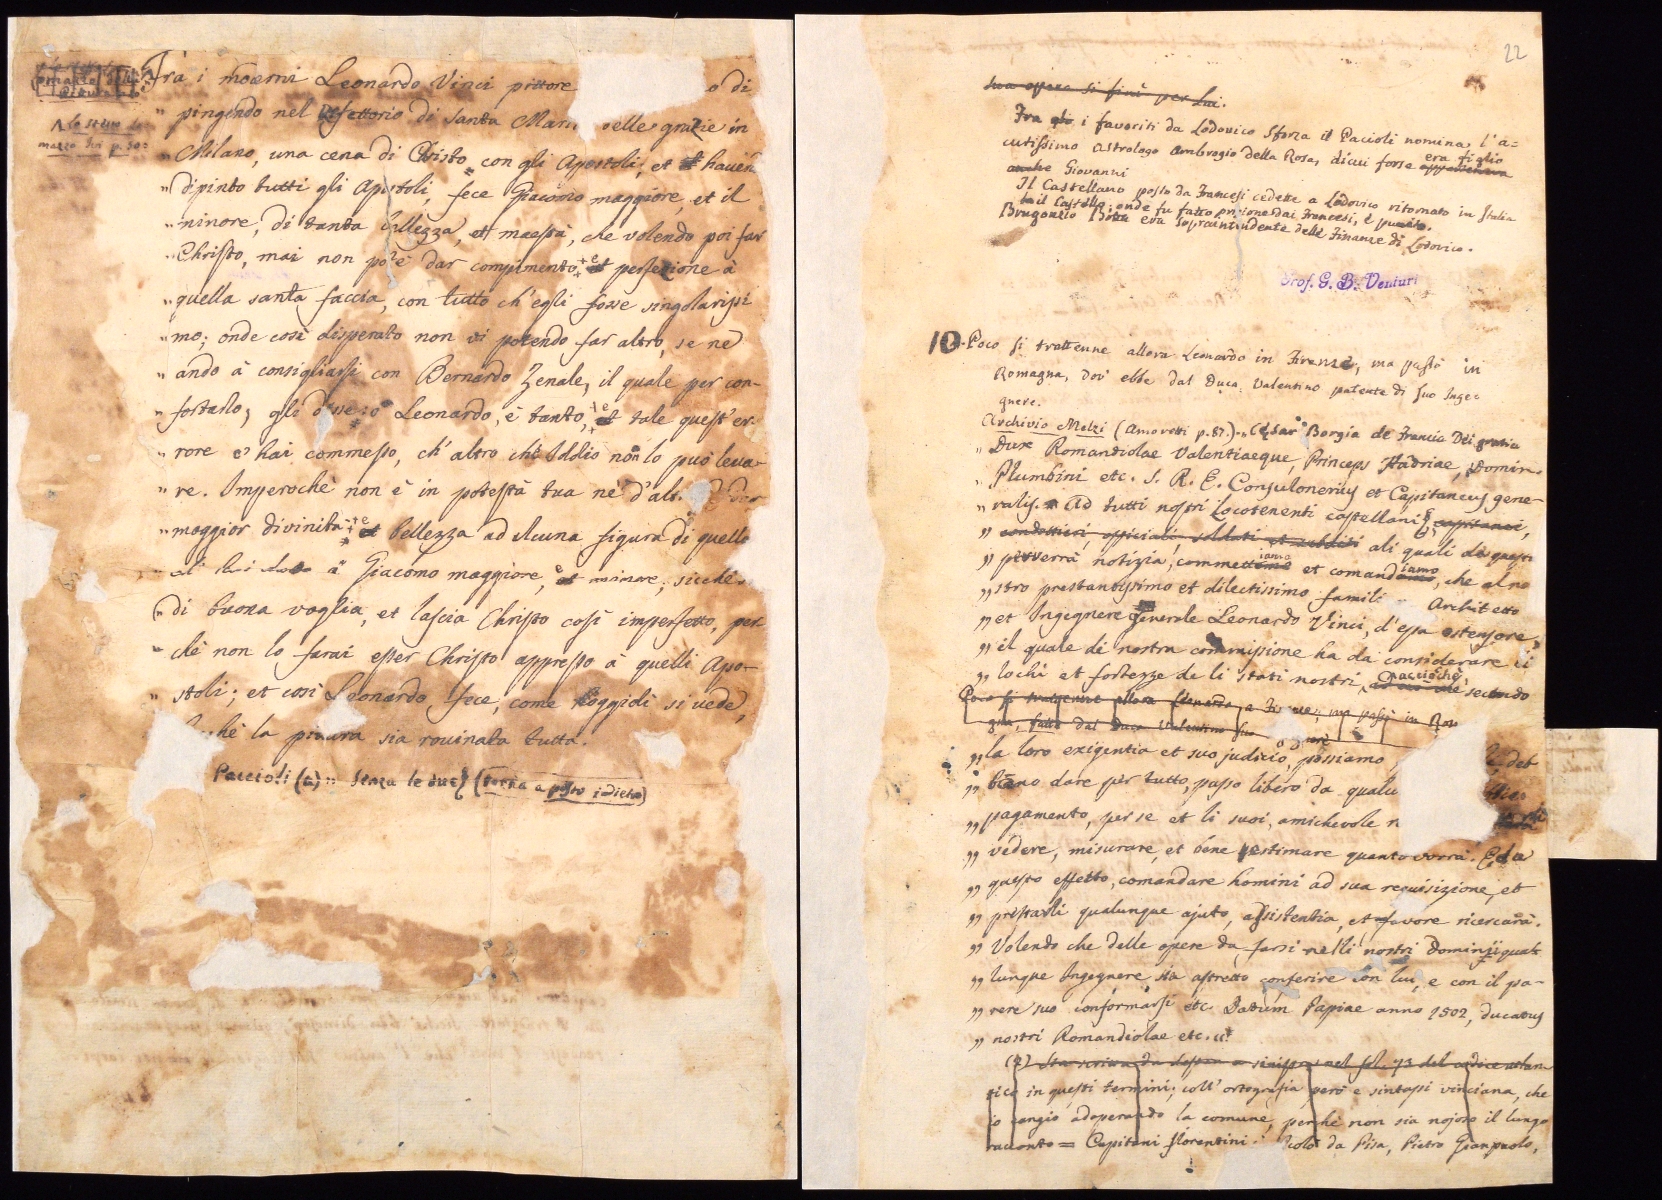 Fra i moderni Leonardo Vinci pittore o di
" pingendo nel Refettorio di Santa Maria delle grazie in
" Milano, una cena di Christo con gli Apostoli, et havendo
" dipinto tutti gli Apostoli, fece Giacomo maggiore, et il
" minore, di tanta bellezza, et maestà, che volendo poi far
" Christo, mai non potè dar compimento, et perfezione à
" quella santa faccia, con tutto ch'egli fosse singolarissi
" mo; onde così disperato non vi potendo far altro, se ne
" andò à consigliarsi con Bernardo Zenale, il quale per con-
" fortarlo, gli disse: o Leonardo, è tanto, et tale quest'er-
" rore c'hai commesso, ch'altro che Iddio non lo può leva-
" re. Imperochè non è in potestà tua nè d'alt. dar
" maggior divinità et bellezza ad alcuna figura di quello
à Giacomo maggiore, et minore; sicchè
" di buona voglia, et lascia Christo così imperfetto, per-
" chè non lo farai esser Christo appresso à quelli Apo-
" stoli; et così Leonardo fece, come hoggidì si vede,
chè la pittura sia rovinata tutta.
Paccioli (a) " Senza le due (torna a posto indietro)
22
sua opera si finì per lui.
Fra gli i favoriti da Lodovico Sforza il Pacioli nomina l'a=
cutissimo astrologo Ambrogio della Rosa, di cui forse era figlio
anche Giovanni
Il Castellano posto da Francesi cedette a Lodovico ritornato in Italia
il Castello; onde fu fatto prigione dai Francesi, e punito.
Brugonzio Botta era Soprantendente delle Finanze di Lodovico.
Prof. G. B. Venturi
10. Poco si trattenne allora Leonardo in Firenze, ma passò in
Romagna, dov'ebbe dal Duca Valentino patente di suo Inge-
gnere.
Archivio Melzi (Amoretti p. 87.) " Cesar Borgia de Francia Dei gratia
" Dux Romandiolae Valentiaeque, Princeps Hadriae, Domin.
" Plumbini etc. S. R. E. Confulonerius et Capitaneus gene-
" ralis. Ad tutti nostri Locotenenti castellani, capitanei,
" condottieri, officiali, soldati et subditi ali quali de questi
" perverrà notizia, commettiamo et comandiamo, che al no
" stro prestantissimo et dilectissimo famili Architetto
" et Ingegnere Generale Leonardo Vinci, d'essa ostensore,
" il quale di nostra commissione ha da considerare li
" lochi et fortezze de li stati nostri, acciochè secundo
Poco si trattenne allora Leonardo a Firenze, ma passò in Rom
gna, fatto dal Duca Valentino suo
" la loro exigentia et suo judizio, possiamo deb
" biano dare per tutto, passo libero da qualu
" pagamento, per se et li suoi, amichevole
" vedere, misurare, et bene estimare quanto vorrà. Ed a
" questo effetto, comandare homini ad sua requisizione, et
" prestarli qualunque ajuto, assistentia, et favore ricercarà.
" Volendo che delle opere da farsi nelli nostri Dominii qua-
" lunque Ingegnere, sia astretto conferire con lui, e con il pa-
" rere suo conformarsi etc Datum Papiae anno 1502, ducatus
" nostri Romandiolae etc. "
Sta scritta da destra a sinistra nel fol. 73 del codice atlan-
tico in questi termini; coll'ortografia però e sintassi vinciana, che
io cangio adoperando la comune, perchè non sia nojoso il lungo
racconto = Capitani Fiorentini: da Pisa, Pietro Gianpaolo,